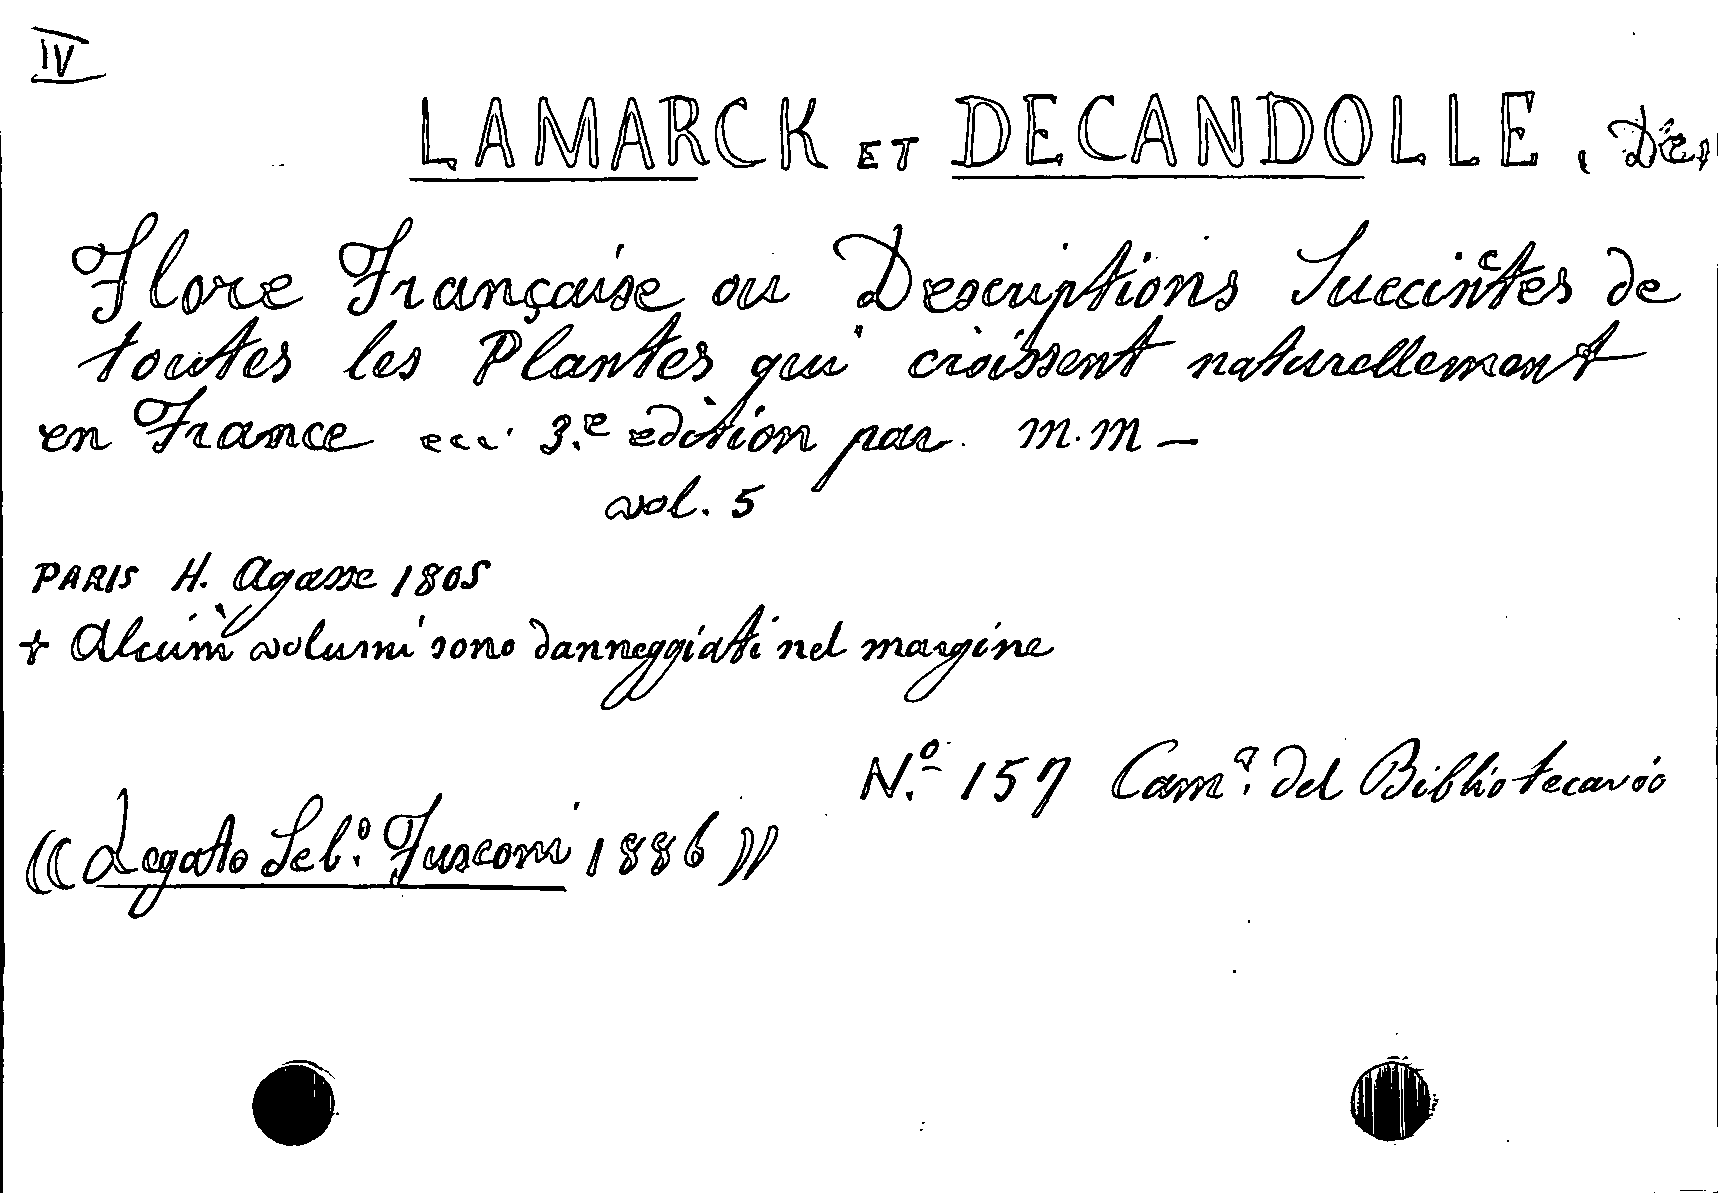 IV
LAMARCK ET DECANDOLLE, De,
Flore Française ou Descriptions Succinctes de
toutes les Plantes qui croissent naturellement
en France ecc. 3.e edition par M.M —
vol. 5
PARIS H. Agasse 1805
+ Alcuni volumi sono danneggiati nel margine
N.º 157 Cam.ª del Bibliotecario
((Legato Seb.º Fusconi 1886))